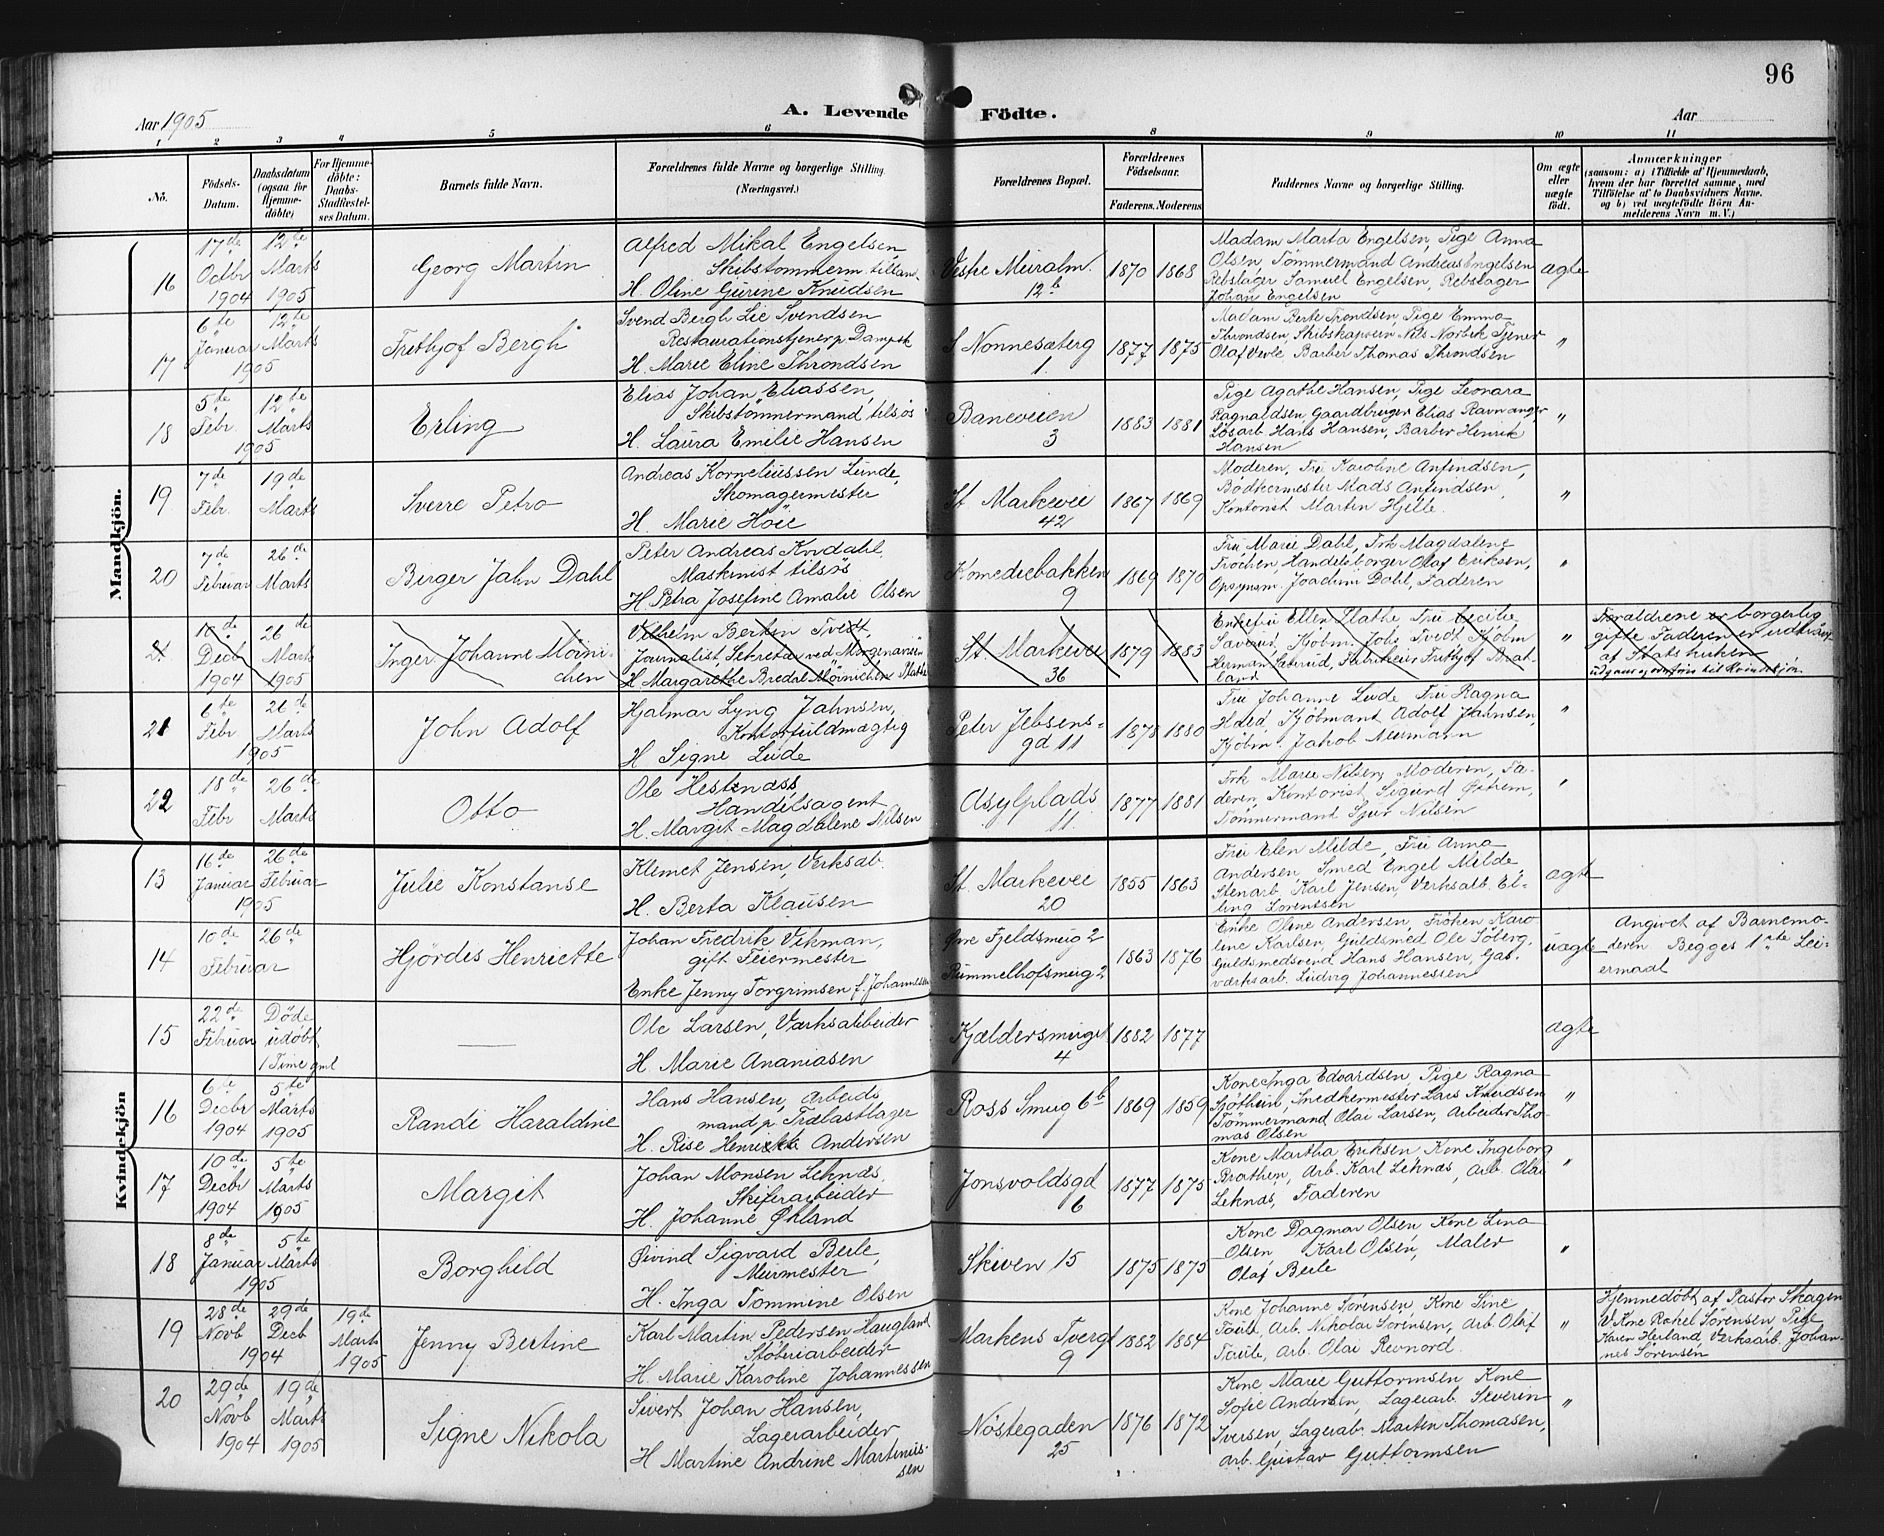 96
Aar 1905
A. Levende Födte.
Aar
1 2 3 4 5 6 8 9 10 11
No.
Födsels-Datum.
Daabsdatum (ogsaa for Hjemmedöbte)
For Hjemmedöbte: Daabs-Stadfæstelses Datum.
Barnets fulde Navn.
Forældrenes fulde Navne og borgerlige Stilling. (Næringsvei.)
Forældrenes Bopæl.
Forældrenes Födselsaar.
Faderens. Moderens
Faddernes Navne og borgerlige Stilling.
Om ægte eller uægte födt.
Anmærkninger
(saasom: a) i Tilfælde af Hjemmedaab, hvem der har forrettet samme, med Tilföielse af to Daabsvidners Navne. og b) ved uægtefödte Börn Anmelderens Navn m. V.)
Mandkjön.
16
17de Octbr 1904
12te Marts 1905
Georg Martin
Alfred Mikal Engelsen,
Skibstømmerm. tilland
H. Oline Gurine Knudsen
Vestre Muralm. 12b
1870 1868
Madam Marta Engelsen, Pige Anna
Olsen, Tømmermand Andreas Engelsen
Rebslager Samuel Engelsen, Rebslager
Johan Engelsen
ægte
17
6te Januar 1905
12te Marts
Frithjof Bergh
Svend Bergh Lie Svendsen
Restaurationstjener p. Dampsk
H. Marie Eline Throndsen
S Nonnesæterg 1.
1877 1875
Madam Berte Trondsen, Pige Emma
Throndsen, Skibskaptein Nils Norbek Tjener
Olaf Verle Barber Thomas Throndsen
"
18
5te Febr. 1905
12te Marts
Erling
Elias Johan Eliassen,
Skibstømmermand tilsøs
H. Laura Emilie Hansen
Baneveien 3
1883 1881
Pige Agathe Hansen, Pige Leonara
Ragnaldsen Gaardbruger Elias Ravnanger,
Løsarb. Hans Hansen, Barber Henrik
Hansen
"
19
7de Febr.
19de Marts
Sverre Petro
Andreas Korneliussen Lunde,
Skomagermester
H. Marie Höie
St. Markevei 42
1867 1869
Moderen, Fru Karoline Anfindsen,
Bödkermester Mads Anfindsen,
Kontorist Martin Hjelle.
"
20
7de Februar
26de Marts
Birger Jahn Dahl
Peter Andreas Kvrdahl
Maskinist tilsøs
H. Petra Josefine Amalie Olsen
Komediebakken 9
1869 1870
Fru Marie Dahl, Frk Magdalene
Fröchen Handelsborger Olaf Eriksen,
Opsynsm. Joachim Dahl, Faderen
"
21
10de Decbr 1904
26de Marts 1905
Inger Johanne Mönnichen
Vilhelm Berkin Tvedt,
Journalist, Sekretæ ved Morgenavisen
H. Margarethe Bredal Mönnichen Plathe
St. Markevei 36
1879 1883
Enkefru Ellen Plathe Fru Cecilie
Saverud, Kjöbm. Johs Tvedt Kjöbm
Herman Sæterud, Fabrikeier Frithjof Bratland
"
Forældrene er borgerlig
gifte Faderen er udtraadt
af Statskirken
udgaar og overføres til Kvindekjøn.
21
6te Febr 1905
26de Marts
John Adolf
Hjalmar Lyng Jahnsen,
Kontorfuldmægtig
H. Signe Lude
Peter Jebsensgd 11
1878 1880
Fru Johanne Lude Fru Ragna
Holed, Kjöbmant Adolf Jahnsen,
Kjöbm. Jakob Neumann
"
22
18de Febr
26de Marts
Otto
Ole Hestenæs,
Handelsagent
H. Margit Magdalene Nilsen
Asylplads 11.
1877 1881
Frk Marie Nilsen, Moderen, Faderen, Kontorist Sigurd Østrem,
Tömmermand Sjur Nilsen
"
Kvindekjön
13
16de Januar 1905
26de Februar
Julie Konstanse
Klemet Jensen, Verksarb.
H. Berta Klausen
St. Markevei 20
1855 1863
Fru Elen Milde, Fru Anna
Andersen, Smed Engel Milde
Stenarb. Karl Jensen, Verksarb. Elling Sørensen
ægte
14
10de 26de Februar
Hjördis Henriette
Johan Fredrik Vikman,
gift Feiermester
Enke Jenny Torgrimsen f. Johannessen
Øvre Fjeldsmug 2
Rummelhofsmug 2
1863 1876
Enke Oline Andersen, Fröken Karoline Karlsen, Guldsmed Ole Söberg,
Guldsmedsvend Hans Hansen, Gasværksarb. Ludvig Johannessen
uægte
Angivet af Barnemoderen Begges 1ste Leiermaal
15
22de Februar
Døde udöbt 1 Time gml
Ole Larsen, Værksarbeider
H. Marie Ananiasen
Kjeldersmuget 4
1882 1877
ægte
16
6te Decbr 1904
5te Marts 1905
Randi Haraldine
Hans Hansen, Arbeidsmand p. Trælastlager
H. Rise Henrikke Andersen
Ross Smug 6b
1869 1859
Kone Inga Edvardsen, Pige Ragna
Sjøthun, Snedkermester Lars Knudsen
Tømmermand Olai Larsen, Arbeider Thomas Olsen
"
17
10de Decbr 1904
5te Marts 1905
Margit
Johan Monsen Leknæs,
Skiferarbeider
H. Johanne Økland
Jonsvoldsgd 6
1877 1875
Kone Martha Eriksen Kone Ingeborg
Brathen, Arb. Karl Leknæs, Arb. Olai
Leknæs, Faderen
"
18
8de Januar 1905
5te Marts
Borghild
Øivind Sigvard Berle,
Murmester
H. Inga Tommine Olsen
Skiven 15
1875 1875
Kone Dagmar Olsen, Kone Lina
Olsen Karl Olsen, Maler
Olaf Berle
"
19
28de Novb 1904
29de Decb
19de Marts 1905
Jenny Bertine
Karl Martin Pedersen Haugland
Støberiarbeider
H. Marie Karoline Johannessen
Markens Tvergd 9
1882 1884
Kone Johanne Sørensen, Kone Line
Taule, Arb. Nikolai Sørensen, Arb. Olaf
Taule, Arb. Olai Revnord.
"
Hjemmedöbt af Pastor Skagen
V. Kone Rakel Sørensen, Pige
Karen Herland, Verksarb. Johannes Sørensen
20
29de Novb 1904
19de Marts 1905
Signe Nikola
Sivert Johan Hansen,
Lagerarbeider
H Martine Andrine Martinussen
Nöstegaden 25
1876 1872
Kone Marie Guttormsen Kone
Sofie Andersen, Lagerarb. Severin
Iversen, Lagerarb. Martin Thomasen,
Arb. Gustav Guttormsen
"